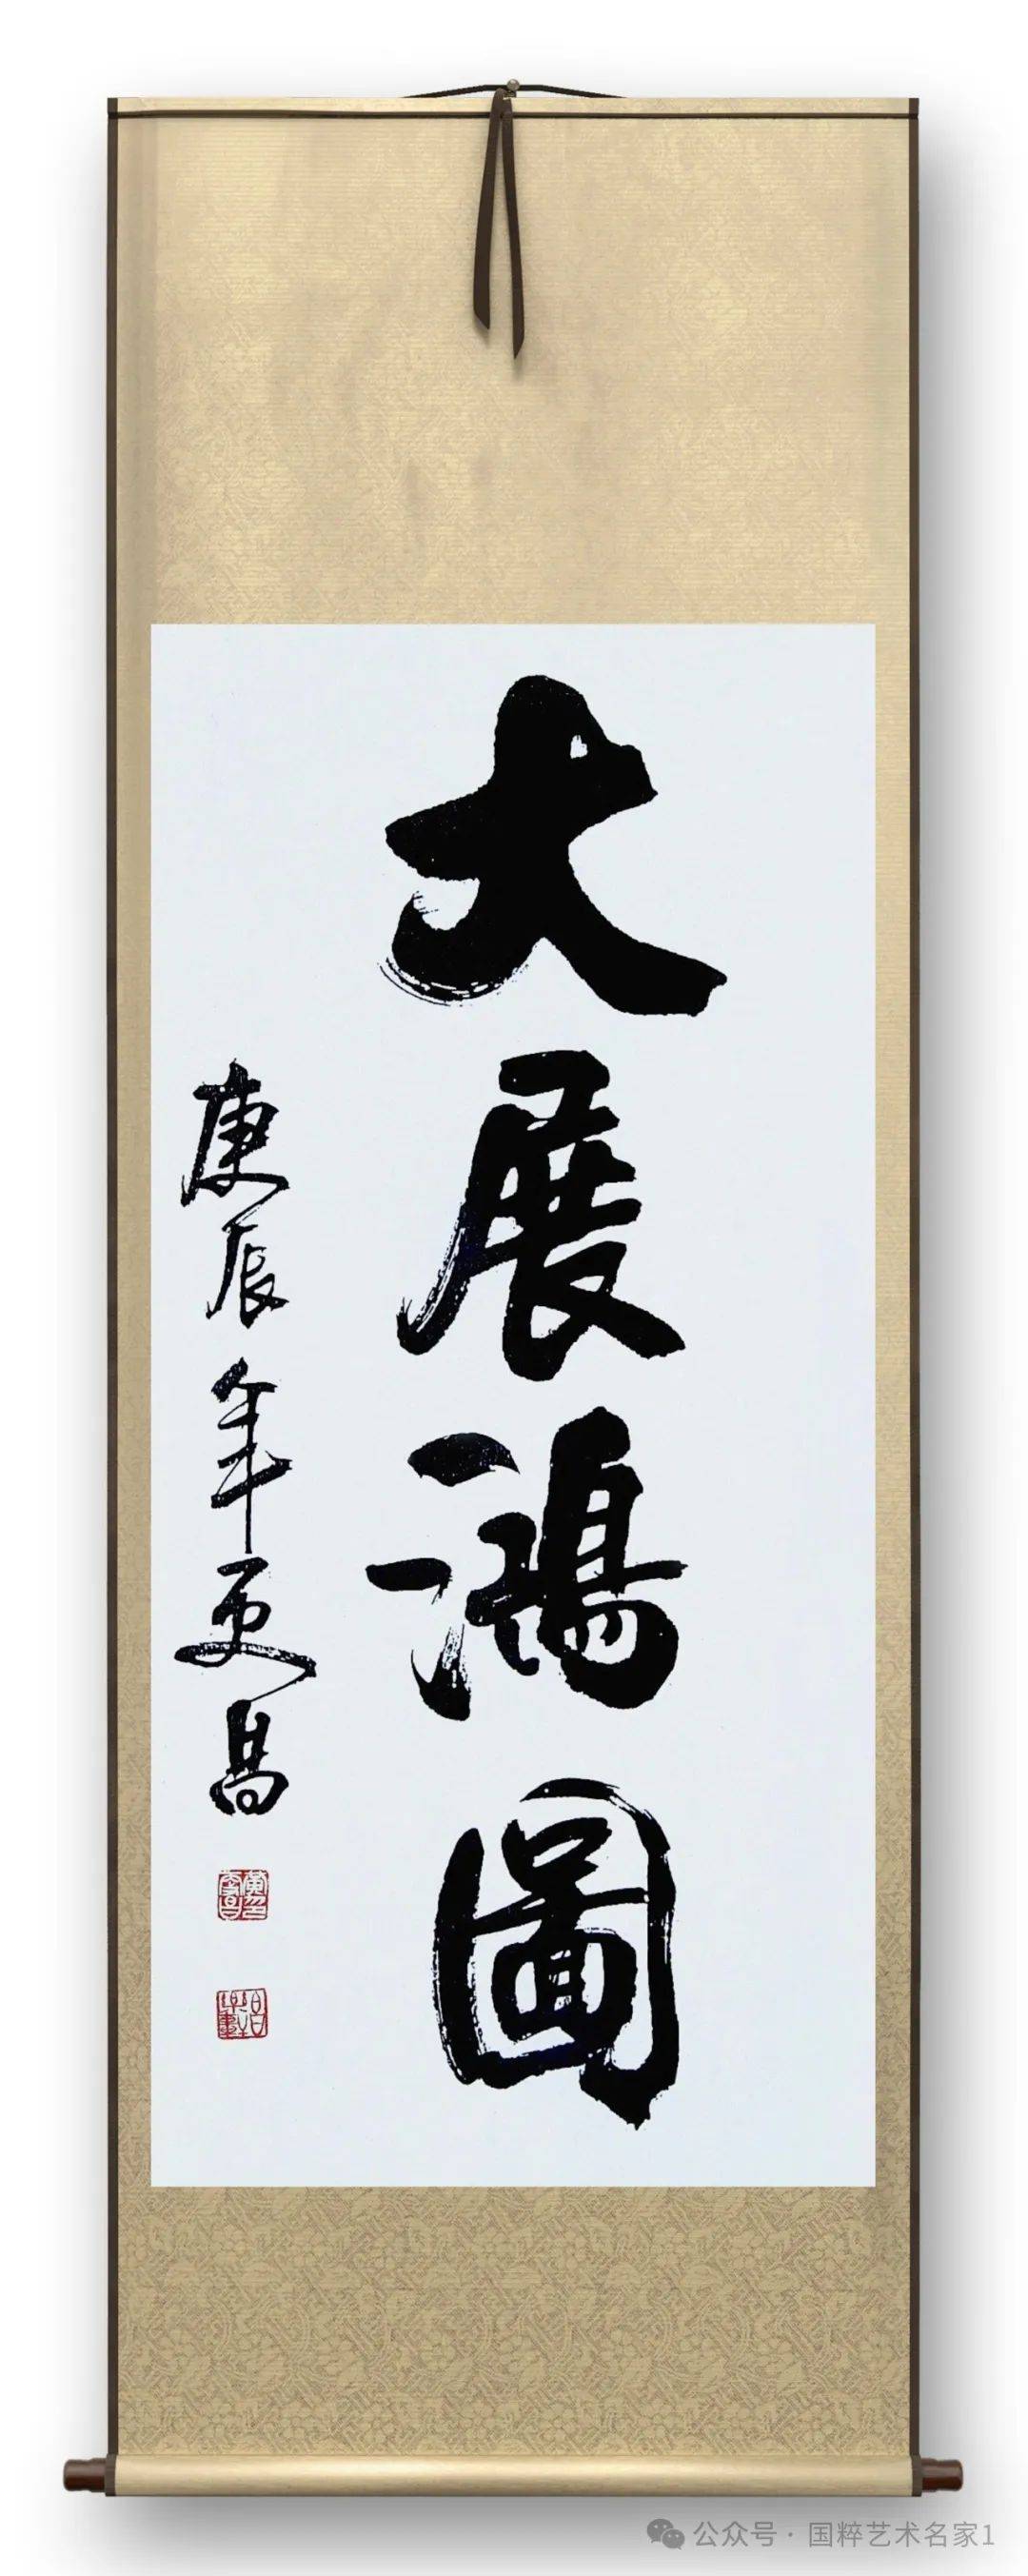 大展鸿圖
庚辰年更昌
公众号·国粹艺术名家1